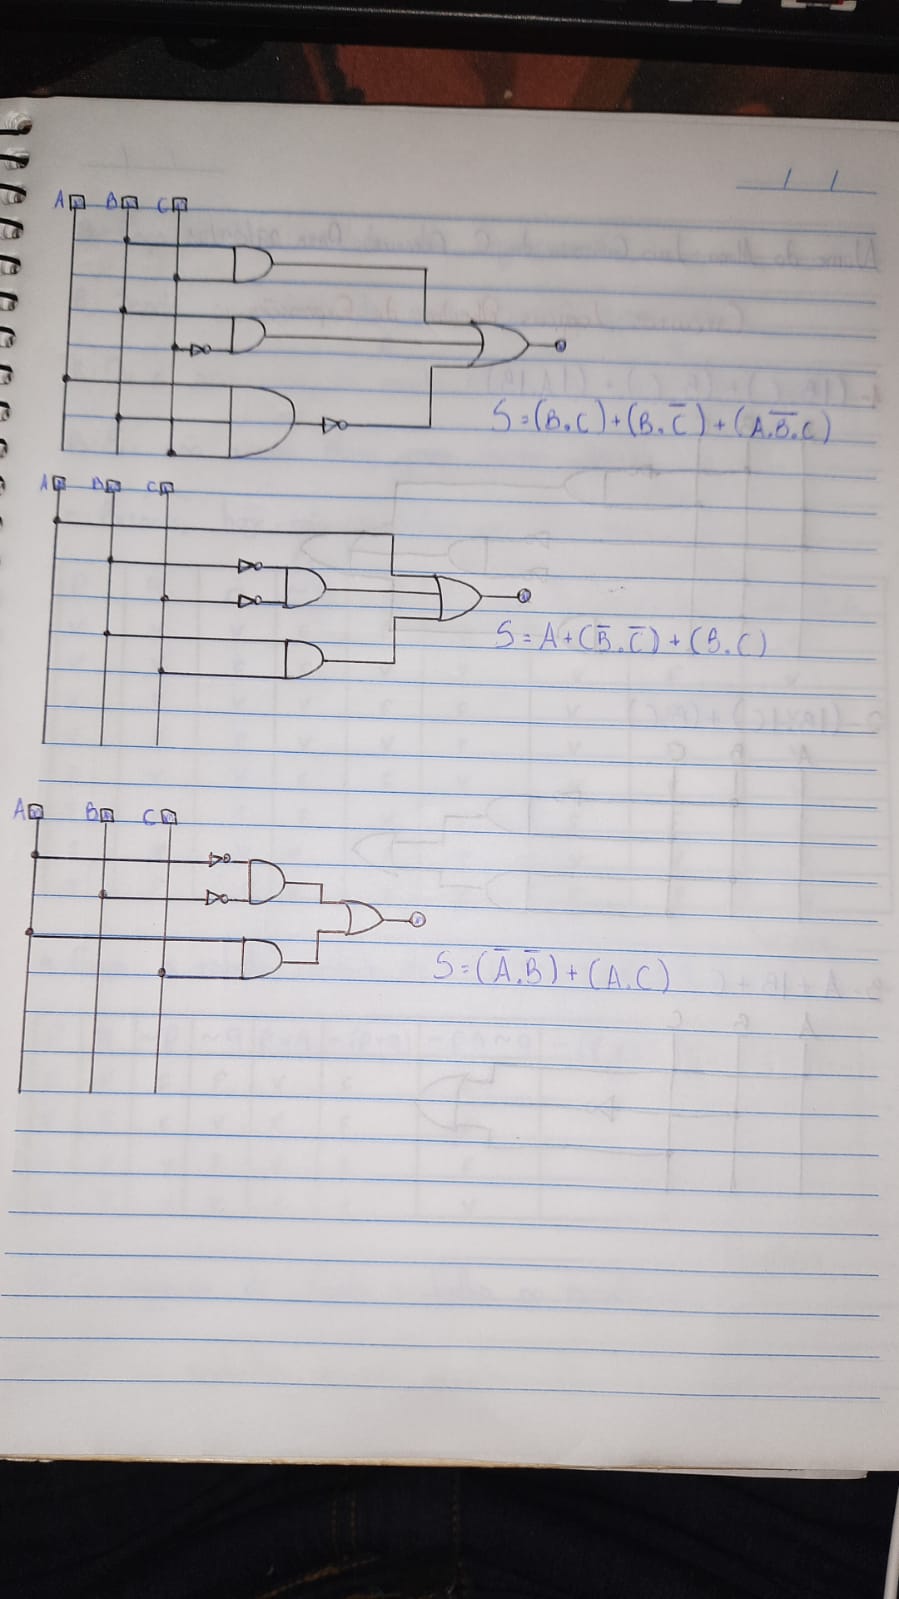 A B C
S=(B.C)+(B.C̅)+(A.B̅.C)
A B C
S=A+(B̅.C̅)+(B.C)
A B C
S=(A̅.B̅)+(A.C)